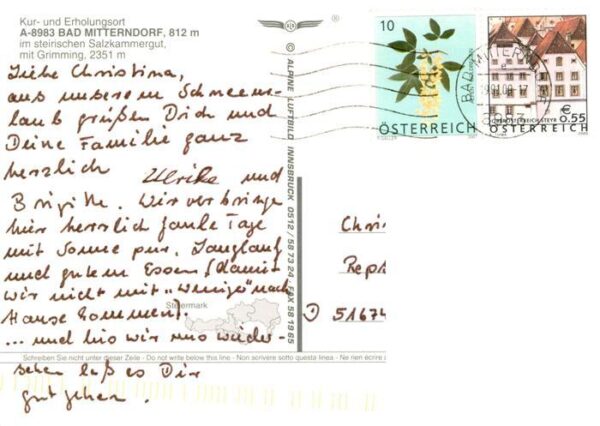 Kur- und Erholungsort
A-8983 BAD MITTERNDORF, 812 m
im steirischen Salzkammergut,
mit Grimming, 2351 m
Liebe Christina,
aus unserem Schneeur-
laub grüßen Dich und
Deine Familie ganz
herzlich Ulrike und
Brigitte. Wir verbringen
hier herrlich faule Tage
mit Sonne pur, Langlauf
und gutem Essen (damit
wir nicht mit "weniger" nach
Hause kommen).
... und bis wir uns wieder-
sehen laß es Dir
gut gehen.
Steiermark
Schreiben Sie nicht unter dieser Zeile - Do not write below this line - Non scrivere sotto questa linea - Ne rien écrire
© ALPINE LUFTBILD INNSBRUCK 0512 / 58 73 24 - FAX 58 19 65
10
ÖSTERREICH
BAD MITTERND
8983
€ 0.55
ÖSTERREICH
Chri
Rep
51674